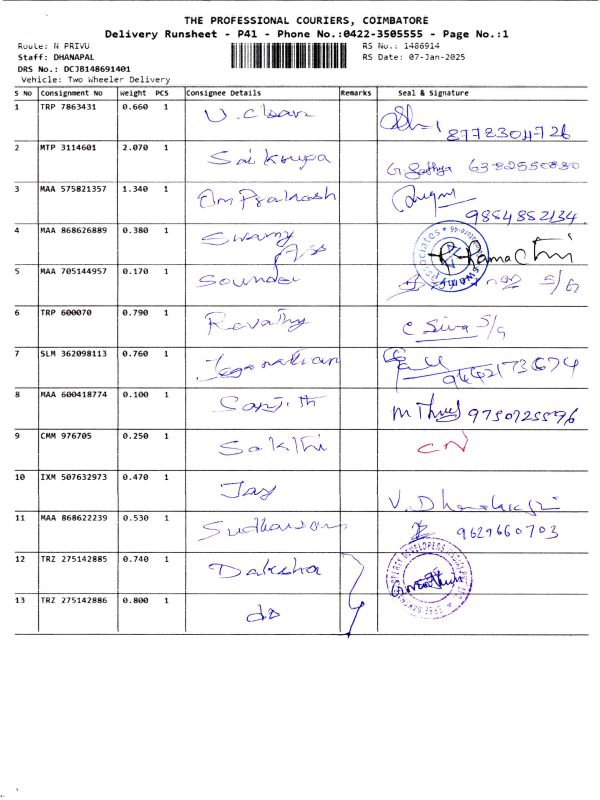 THE PROFESSIONAL COURIERS, COIMBATORE
Delivery Runsheet - P41 - Phone No.:0422-3505555 - Page No.:1
Route: N PRIVU RS No.: 1486914
Staff: DHANAPAL RS Date: 07-Jan-2025
DRS No.: DCJB148691401
Vehicle: Two Wheeler Delivery
S NO Consignment No Weight PCS Consignee Details Remarks Seal & Signature
1 TRP 7863431 0.660 1 8778304726
2 MTP 3114601 2.070 1 Sri Krupa G Sathya 6382550830
3 MAA 575821357 1.340 1 Om Prakash 9854852134
4 MAA 868626889 0.380 1 Swamy Ramachri
5 MAA 705144957 0.170 1 Soundar
6 TRP 600070 0.790 1 Revathy C Siva S/G
7 SLM 362098113 0.760 1 Jeganathan
8 MAA 600418774 0.100 1 Sanjith
9 CMM 976705 0.250 1 Sakthi CN
10 IXM 507632973 0.470 1 Jay
11 MAA 868622239 0.530 1 9629660703
12 TRZ 275142885 0.740 1 Daksha
13 TRZ 275142886 0.800 1 do